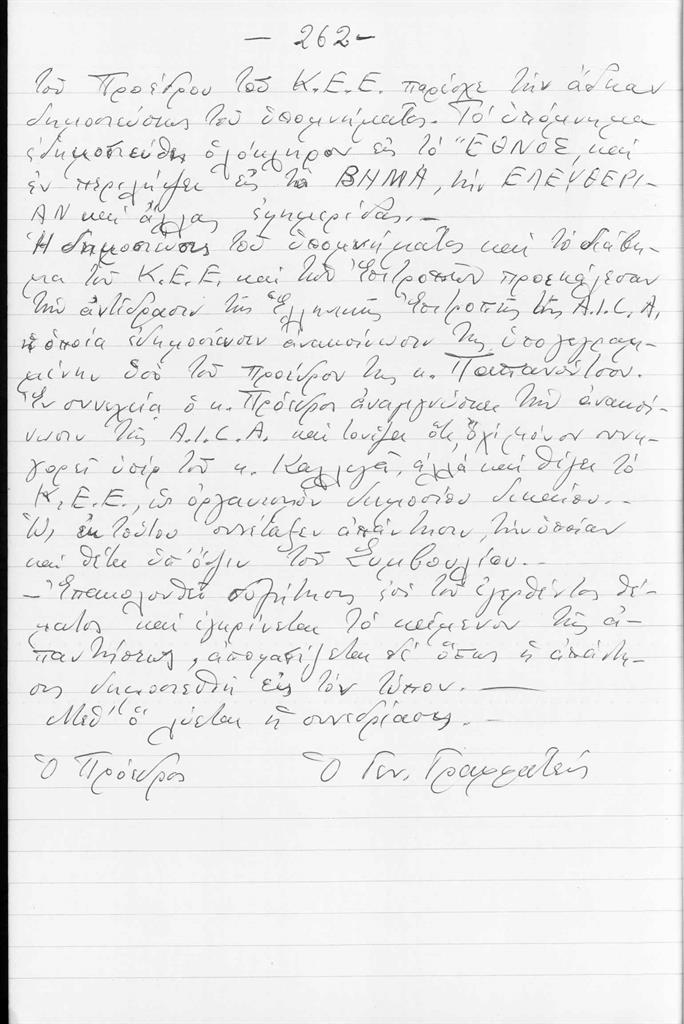 — 262 —
τοῦ Προέδρου τοῦ Κ.Ε.Ε. παρέσχε τὴν ἄδειαν
δημοσιεύσεως τοῦ ὑπομνήματος. Τὸ ὑπόμνημα
ἐδημοσιεύθη ὁλόκληρον εἰς τὸ "ΕΘΝΟΣ, καὶ
ἐν περιλήψει εἰς τὸ ΒΗΜΑ, τὴν ΕΛΕΥΘΕΡΙ-
ΑΝ καὶ ἄλλας ἐφημερίδας.—
Ἡ δημοσίευσις τοῦ ὑπομνήματος καὶ τὸ διάβη-
μα τοῦ Κ.Ε.Ε. καὶ τῶν Ἐπιτροπῶν προεκάλεσαν
τὴν ἀντίδρασιν τῆς Ἑλληνικῆς Ἐπιτροπῆς τῆς A.I.C.A.
ἡ ὁποία ἐδημοσίευσεν ἀνακοίνωσιν της, ὑπογεγραμ-
μένην ὑπὸ τοῦ προέδρου της κ. Παπανούτσου.
Ἐν συνεχείᾳ ὁ κ. Πρόεδρος ἀναγιγνώσκει τὴν ἀνακοί-
νωσιν τῆς A.I.C.A. καὶ τονίζει ὅτι, ὄχι μόνον συνη-
γορεῖ ὑπὲρ τοῦ κ. Καλλιγᾶ, ἀλλὰ καὶ θίγει τὸ
Κ.Ε.Ε., ὡς ὀργανισμὸν δημοσίου δικαίου.—
Ὡς ἐκ τούτου συνέταξεν ἀπάντησιν, τὴν ὁποίαν
καὶ θέτει ὑπ' ὄψιν τοῦ Συμβουλίου.—
— Ἐπακολουθεῖ συζήτησις ἐπὶ τοῦ ἐγερθέντος θέ-
ματος καὶ ἐγκρίνεται τὸ κείμενον τῆς ἀ-
παντήσεως, ἀποφασίζεται δὲ ὅπως ἡ ἀπάντη-
σις δημοσιευθῇ εἰς τὸν τύπον.—
Μεθ' ὃ λύεται ἡ συνεδρίασις.—
Ὁ Πρόεδρος Ὁ Γεν. Γραμματεύς